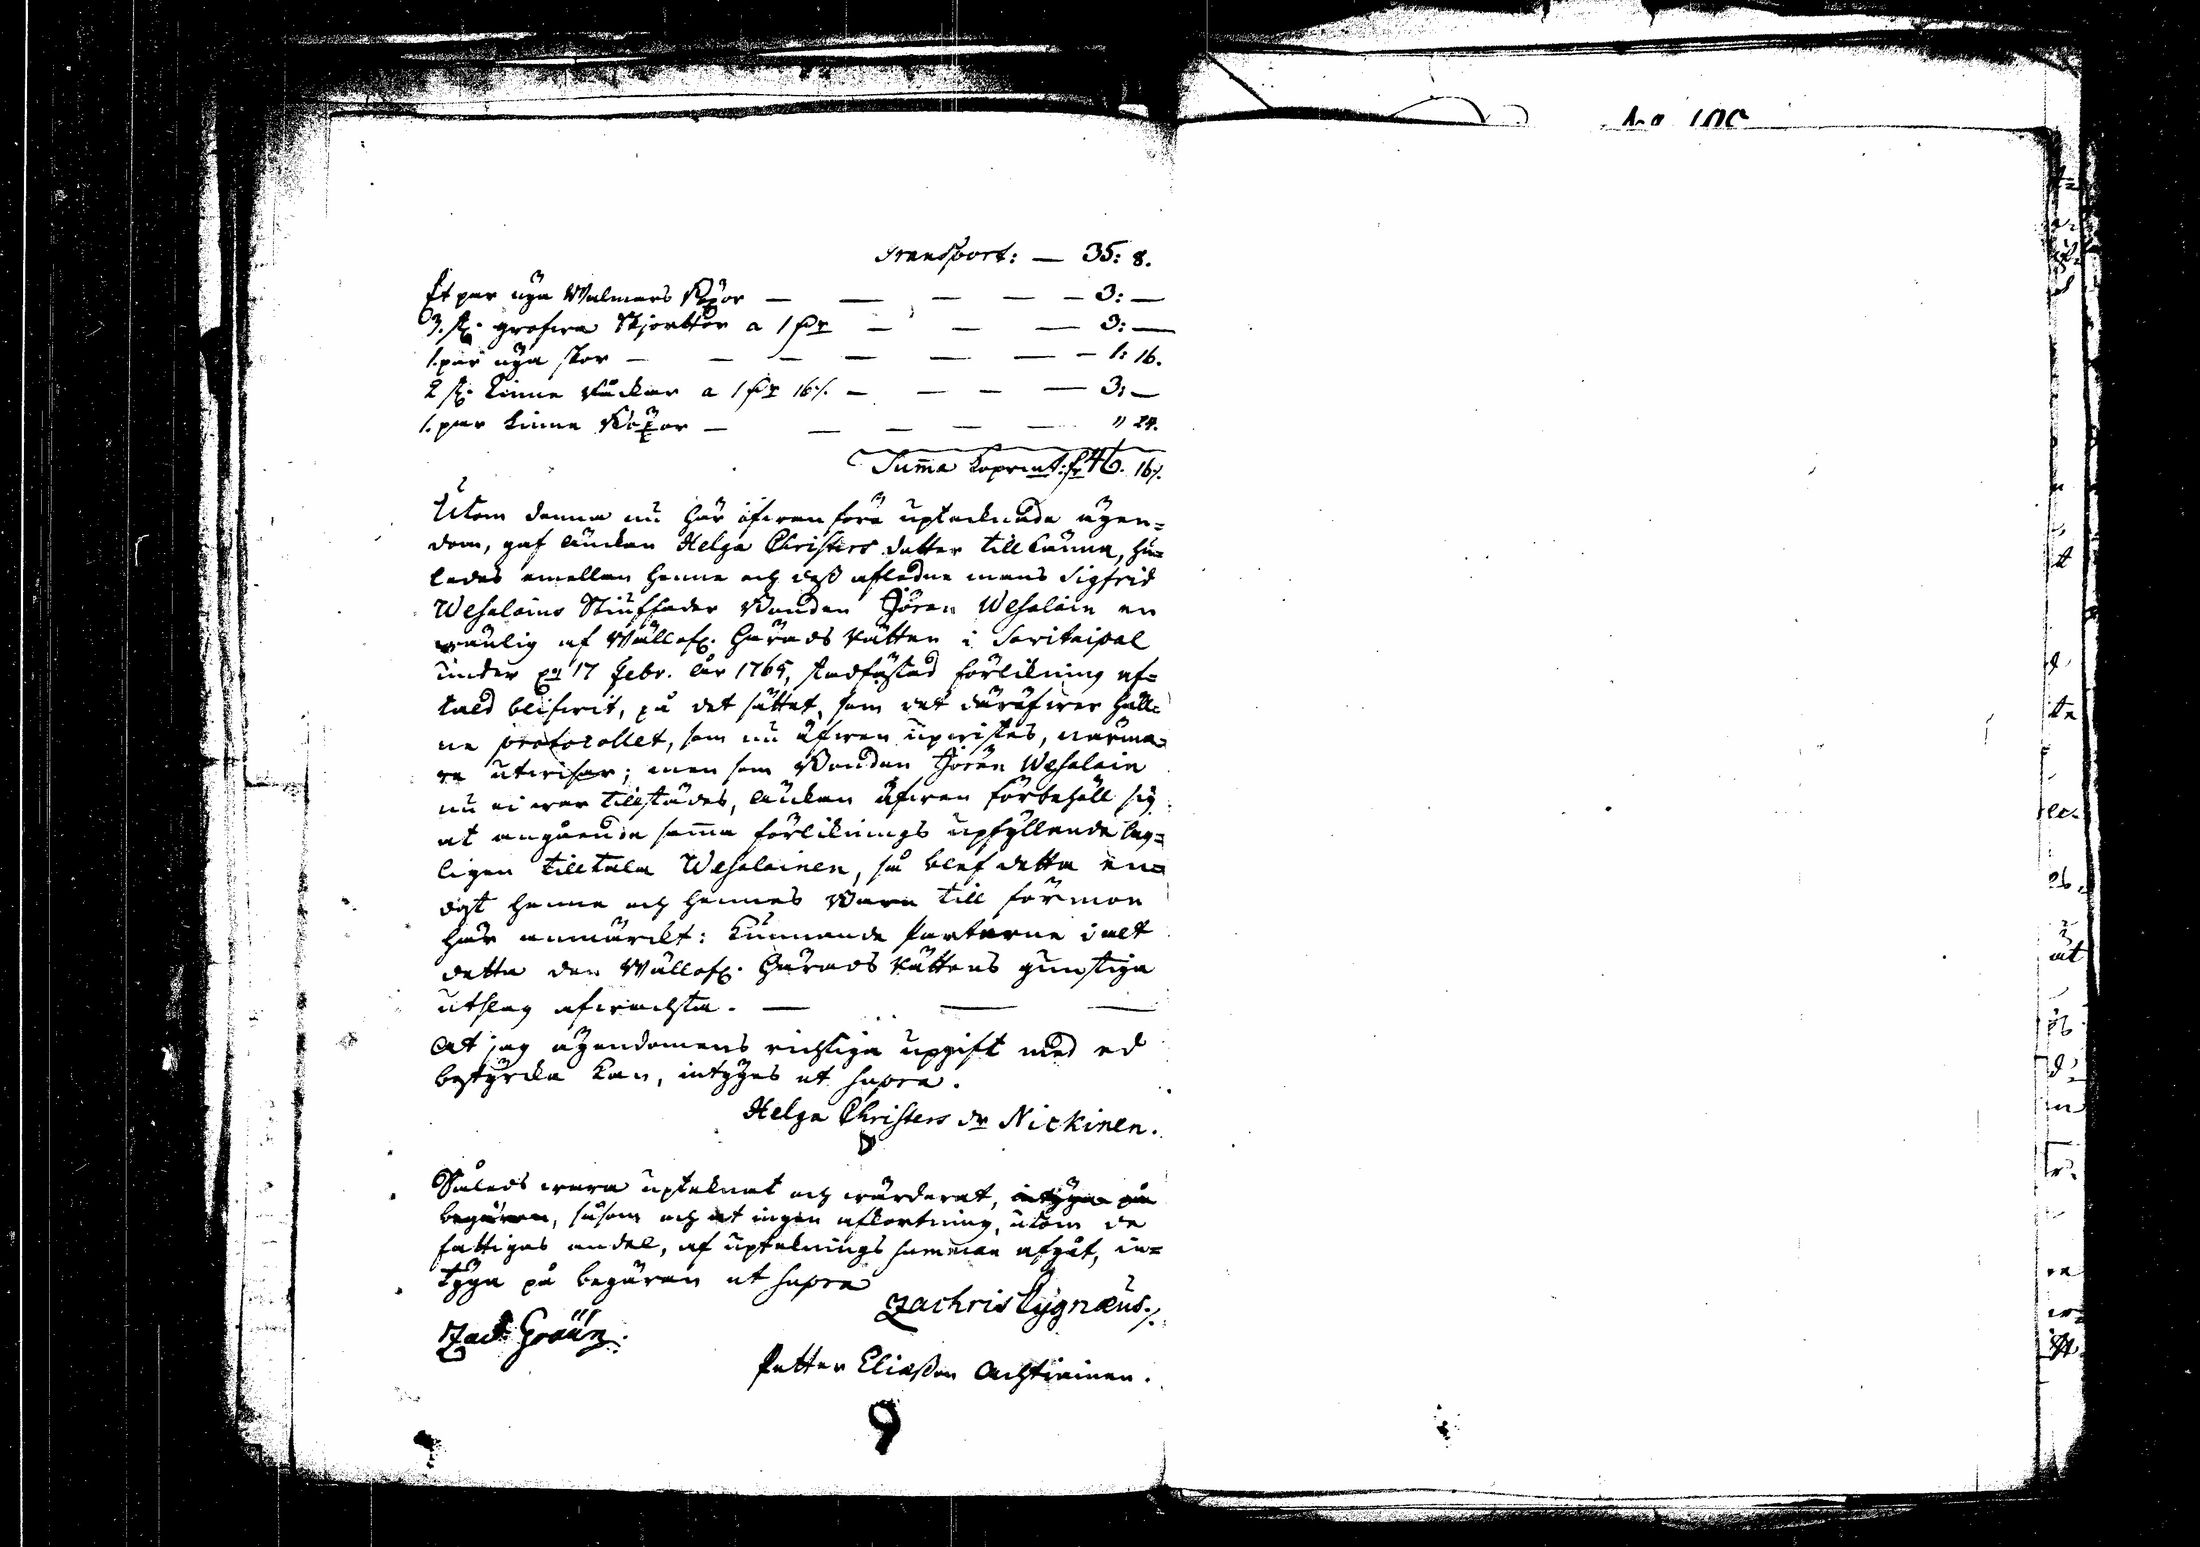 Transport: — 35: 8.
Et par nya Walmars Byxor — — — — — 3: —
3. st. grofwa Skjorttor a 1 — — — 3: —
1. par nya skor — — — — — — — 1: 16.
2 st. Linne a 1 16/. — — — — 3: —
1. par Linne Byxor — — — — — " 24.
Summa 46. 16/.
Utom denna nu här ofwanföre uptecknade egen=
dom, gaf änckan Helga Christers dotter tillkänna, hu=
ledes emellan henne och dess afledne mans Sigfrid
Wesalains Stiuffader Bonden Jören Wesalain en
wänlig af Wällofl. Härads Rätten i Savitaipal
under den 17 Febr. år 1765, stadfästad förlikning af=
tald blifwit, på det sättet, som det däröfwer håll=
ne protocollet, som nu äfwen upwistes, närma=
re utwisar; men som Bonden Jören Wesalain
nu ei war tillstädes, änckan äfwen förbehöll sig
at angående samma förliknings upfyllande lag=
ligen tilltala Wesalainen, så blef detta en=
dast henne och hennes Barn till förmon
här anmärckt: kunnande Parterne i alt
detta den Wällofl. Härads Rättens gunstiga
utslag afwachta. — — —
At jag egendomens richtiga upgift med ed
bestyrcka kan, intyges ut supra.
Helga Christers dr Nickinen.
Således wara uptecknat och wärderat, intyga på
begäran, såsom och at ingen afkortning, utom de
fattigas andel, af uptecknings summan afgåt, in=
tyga på begäran ut supra
Zachris Cygnæus./.
Zach Graün.
Petter Eliasson Achtiainen.
9